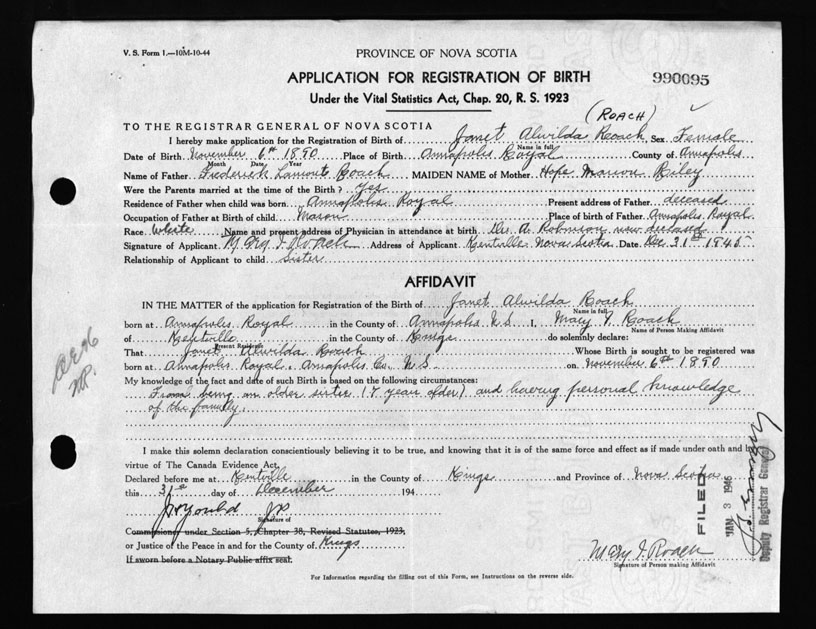 V. S. Form 1.—10M-10-44
PROVINCE OF NOVA SCOTIA
APPLICATION FOR REGISTRATION OF BIRTH
990095
Under the Vital Statistics Act, Chap. 20, R. S. 1923
(ROACH)
TO THE REGISTRAR GENERAL OF NOVA SCOTIA
I hereby make application for the Registration of Birth of Janet Alwilda Roach Sex Female
Name in full
Date of Birth November 6th 1890 Place of Birth Annapolis Royal County of Annapolis
Month Date Year
Name of Father Frederick Lamont Roach MAIDEN NAME of Mother Hope Marion Riley
Were the Parents married at the time of the Birth? yes
Residence of Father when child was born Annapolis Royal Present address of Father deceased
Occupation of Father at Birth of child Mason Place of birth of Father Annapolis Royal
Race White Name and present address of Physician in attendance at birth Dr. A Robinson now deceased
Signature of Applicant Mary I Roach Address of Applicant Kentville Nova Scotia Date Dec 31st 1945
Relationship of Applicant to child Sister
AFFIDAVIT
IN THE MATTER of the application for Registration of the Birth of Janet Alwilda Roach
Name in full
born at Annapolis Royal in the County of Annapolis N.S. I, Mary I. Roach
Name of Person Making Affidavit
of Kentville in the County of Kings do solemnly declare:
Present Residence
That Janet Alwilda Roach Whose Birth is sought to be registered was
born at Annapolis Royal, Annapolis Co., N.S. on November 6th 1890
My knowledge of the fact and date of such Birth is based on the following circumstances:
From being an older sister (7 year older) and having personal knowledge
of the family.
I make this solemn declaration conscientiously believing it to be true, and knowing that it is of the same force and effect as if made under oath and by
virtue of The Canada Evidence Act.
Declared before me at Kentville in the County of Kings and Province of Nova Scotia
this 31st day of December 194
J.P.
Signature of
Commissioner under Section 5, Chapter 38, Revised Statutes, 1923,
or Justice of the Peace in and for the County of Kings
If sworn before a Notary Public affix seal.
Mary I. Roach
Signature of Person making Affidavit
For Information regarding the filling out of this Form, see Instructions on the reverse side.
FILED
JAN 3 1946
Deputy Registrar General